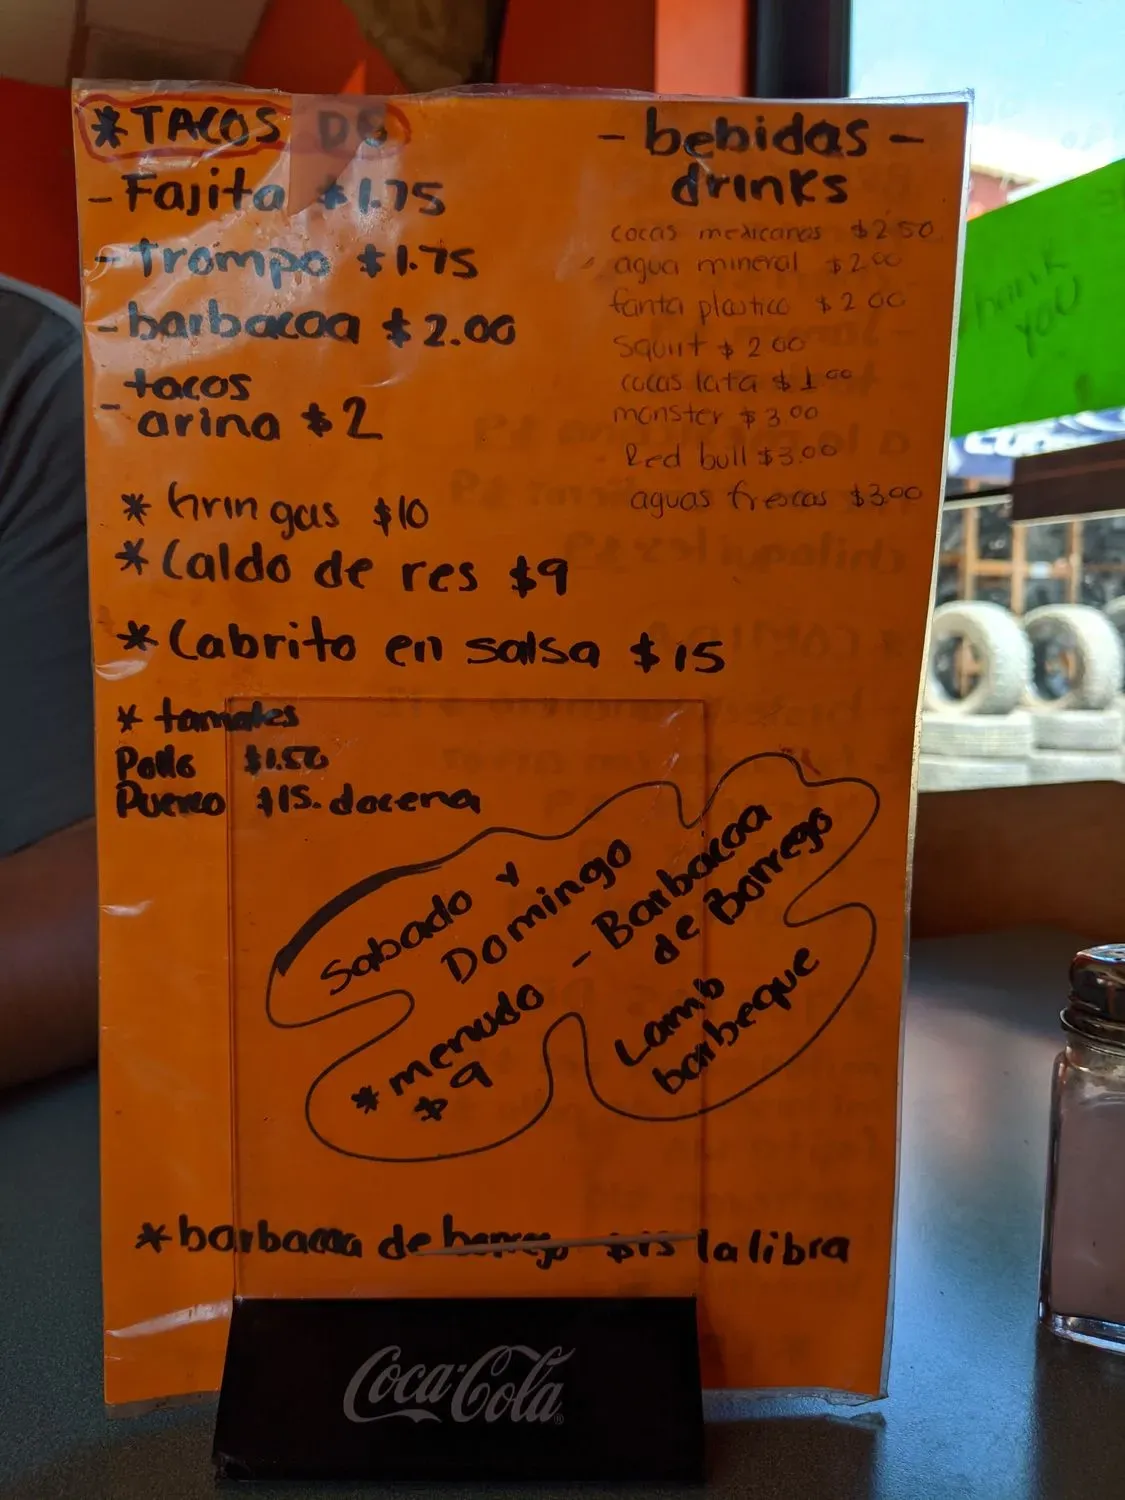 *TACOS DE
- Fajita $1.75
- trompo $1.75
- barbacoa $2.00
- tacos
arina $2
* hringas $10
* Caldo de res $9
* Cabrito en salsa $15
* tamales
Pollo $1.50
Puerco $15. docena
- bebidas -
drinks
cocas mexicanas $2.50
agua mineral $2.00
fanta plastico $2.00
Squirt $2.00
cocas lata $1.00
monster $3.00
Red bull $3.00
aguas frescas $3.00
Sabado y
Domingo
* menudo
$9
- Barbacoa
de Borrego
Lamb
barbeque
* barbacoa de borrego $15 la libra
Coca-Cola
thank
you